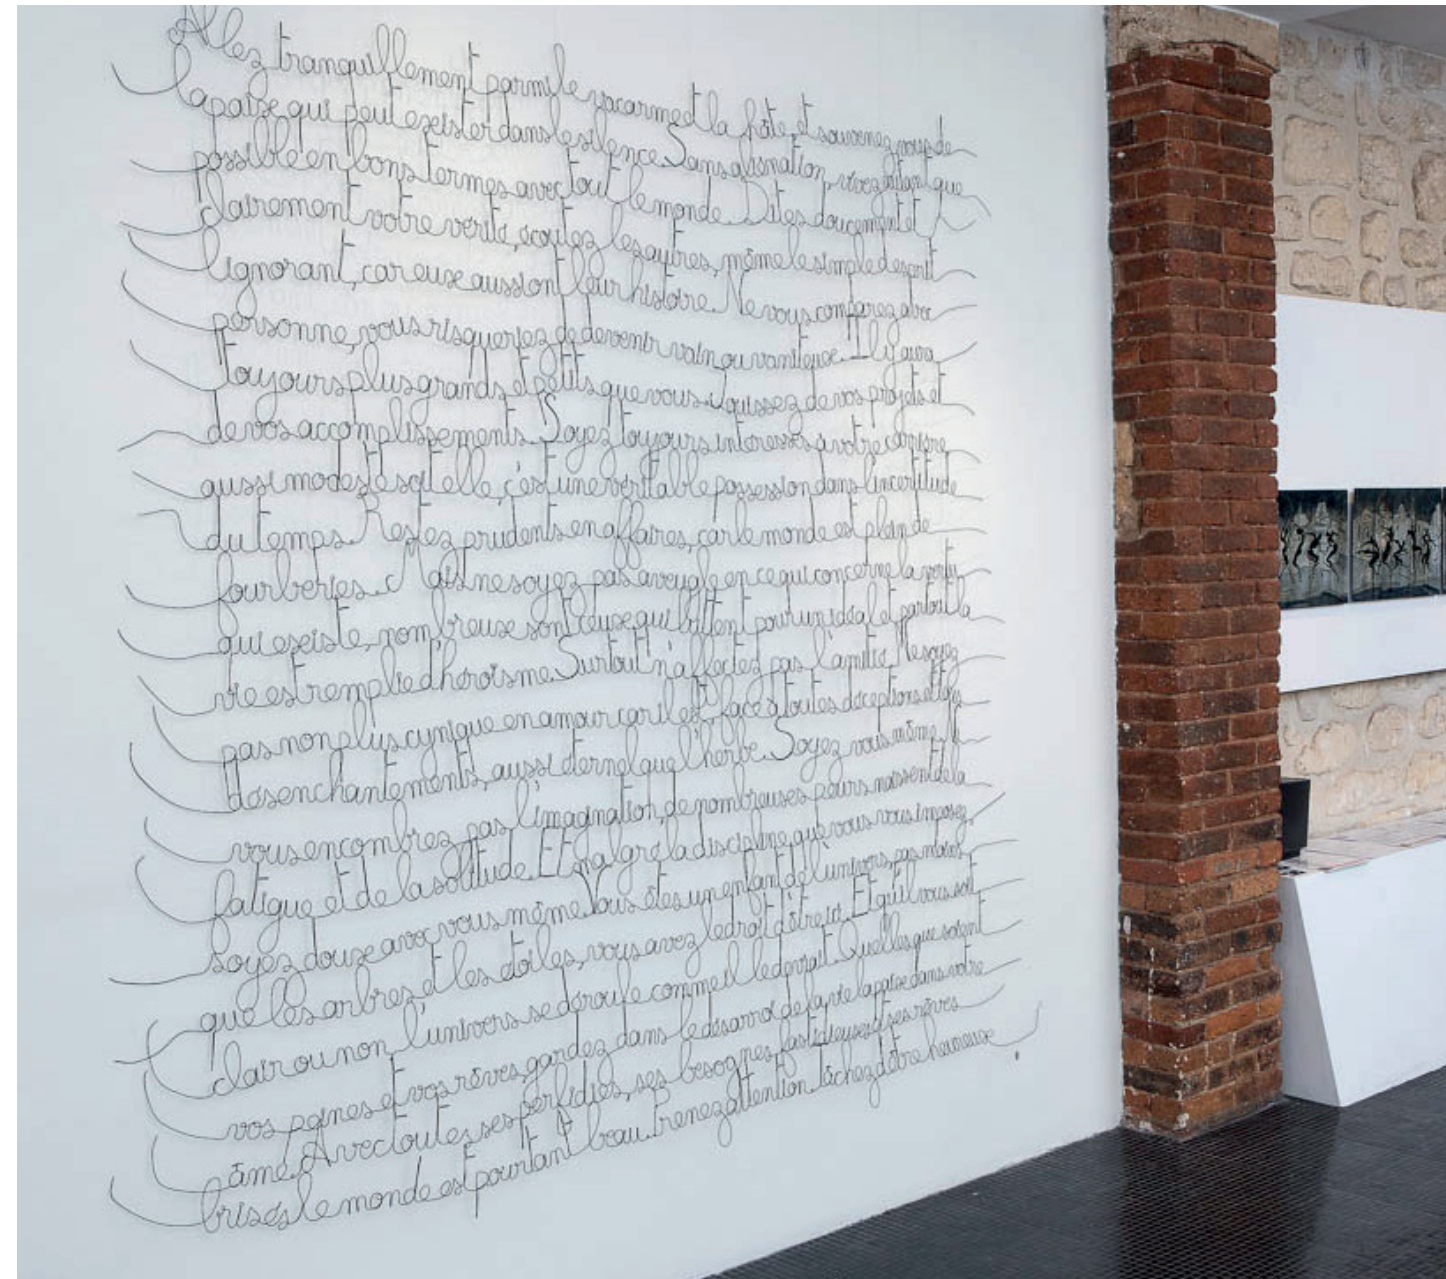 Allez tranquillement parmi le vacarme et la hâte, et souvenez vous de
la paix qui peut exister dans le silence. Sans aliénation, vivez autant que
possible en bons termes avec tout le monde. Dites doucement et
clairement votre vérité, écoutez les autres, même le simple d'esprit
l'ignorant, car eux aussi ont leur histoire. Ne vous comparez avec
personne, vous risqueriez de devenir vain ou vaniteux. Il y aura
toujours plus grands et petits que vous. Jouissez de vos projets et
de vos accomplissements. Soyez toujours intéressés à votre carrière
aussi modeste soit elle, c'est une véritable possession dans l'incertitude
du temps. Restez prudents en affaires, car le monde est plein de
fourberies. Mais ne soyez pas aveugle en ce qui concerne la vertu
qui existe, nombreux sont ceux qui luttent pour un idéal et partout la
vie est remplie d'héroïsme. Surtout n'affectez pas l'amitié. Ne soyez
pas non plus cynique en amour car il est face à toutes déceptions et
désenchantements, aussi éternel que l'herbe. Soyez vous même.
vous encombrez pas l'imagination, de nombreuses peurs naissent de la
fatigue et de la solitude. Et malgré la discipline que vous vous imposez,
soyez doux avec vous même. Vous êtes un enfant de l'univers, pas moins
que les arbres et les étoiles, vous avez le droit d'être ici. Et qu'il vous soit
clair ou non l'univers se déroule comme il le devrait. Quelles que soient
vos peines et vos rêves, gardez dans le désarroi de la vie la paix dans votre
âme. Avec toutes ses perfidies, ses besognes fastidieuses et ses rêves
brisés le monde est pourtant beau. Prenez attention, tâchez d'être heureux.